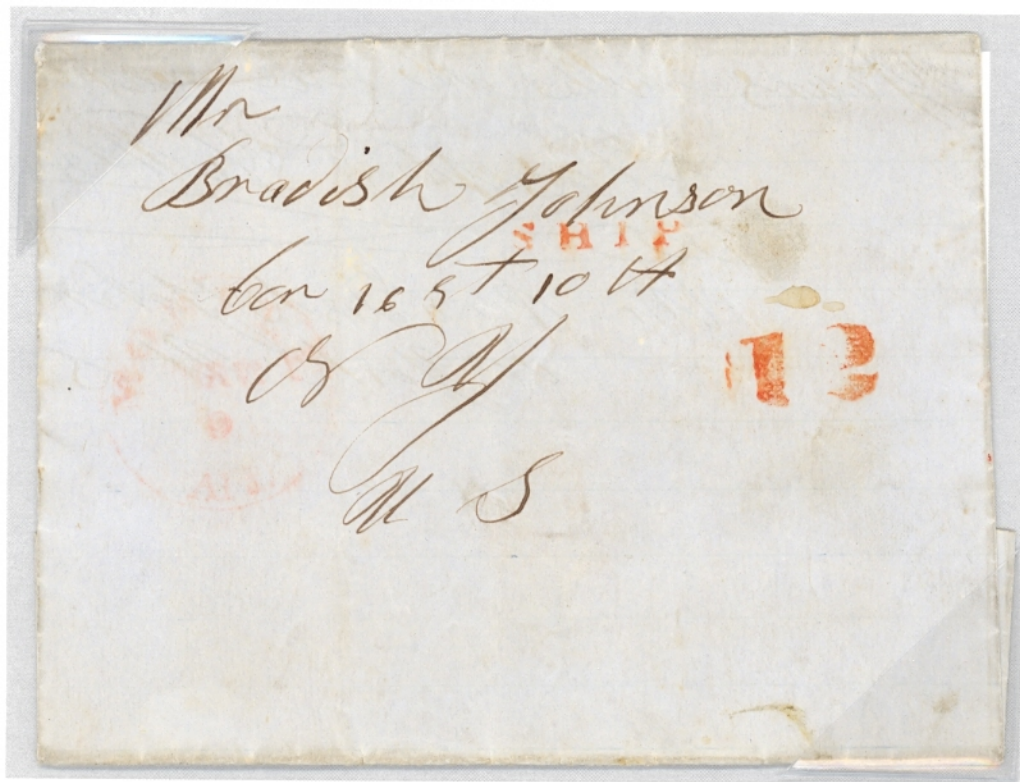 Mr
Bradish Johnson
SHIP
Cor 16 St 10 A
N Y
12
U S